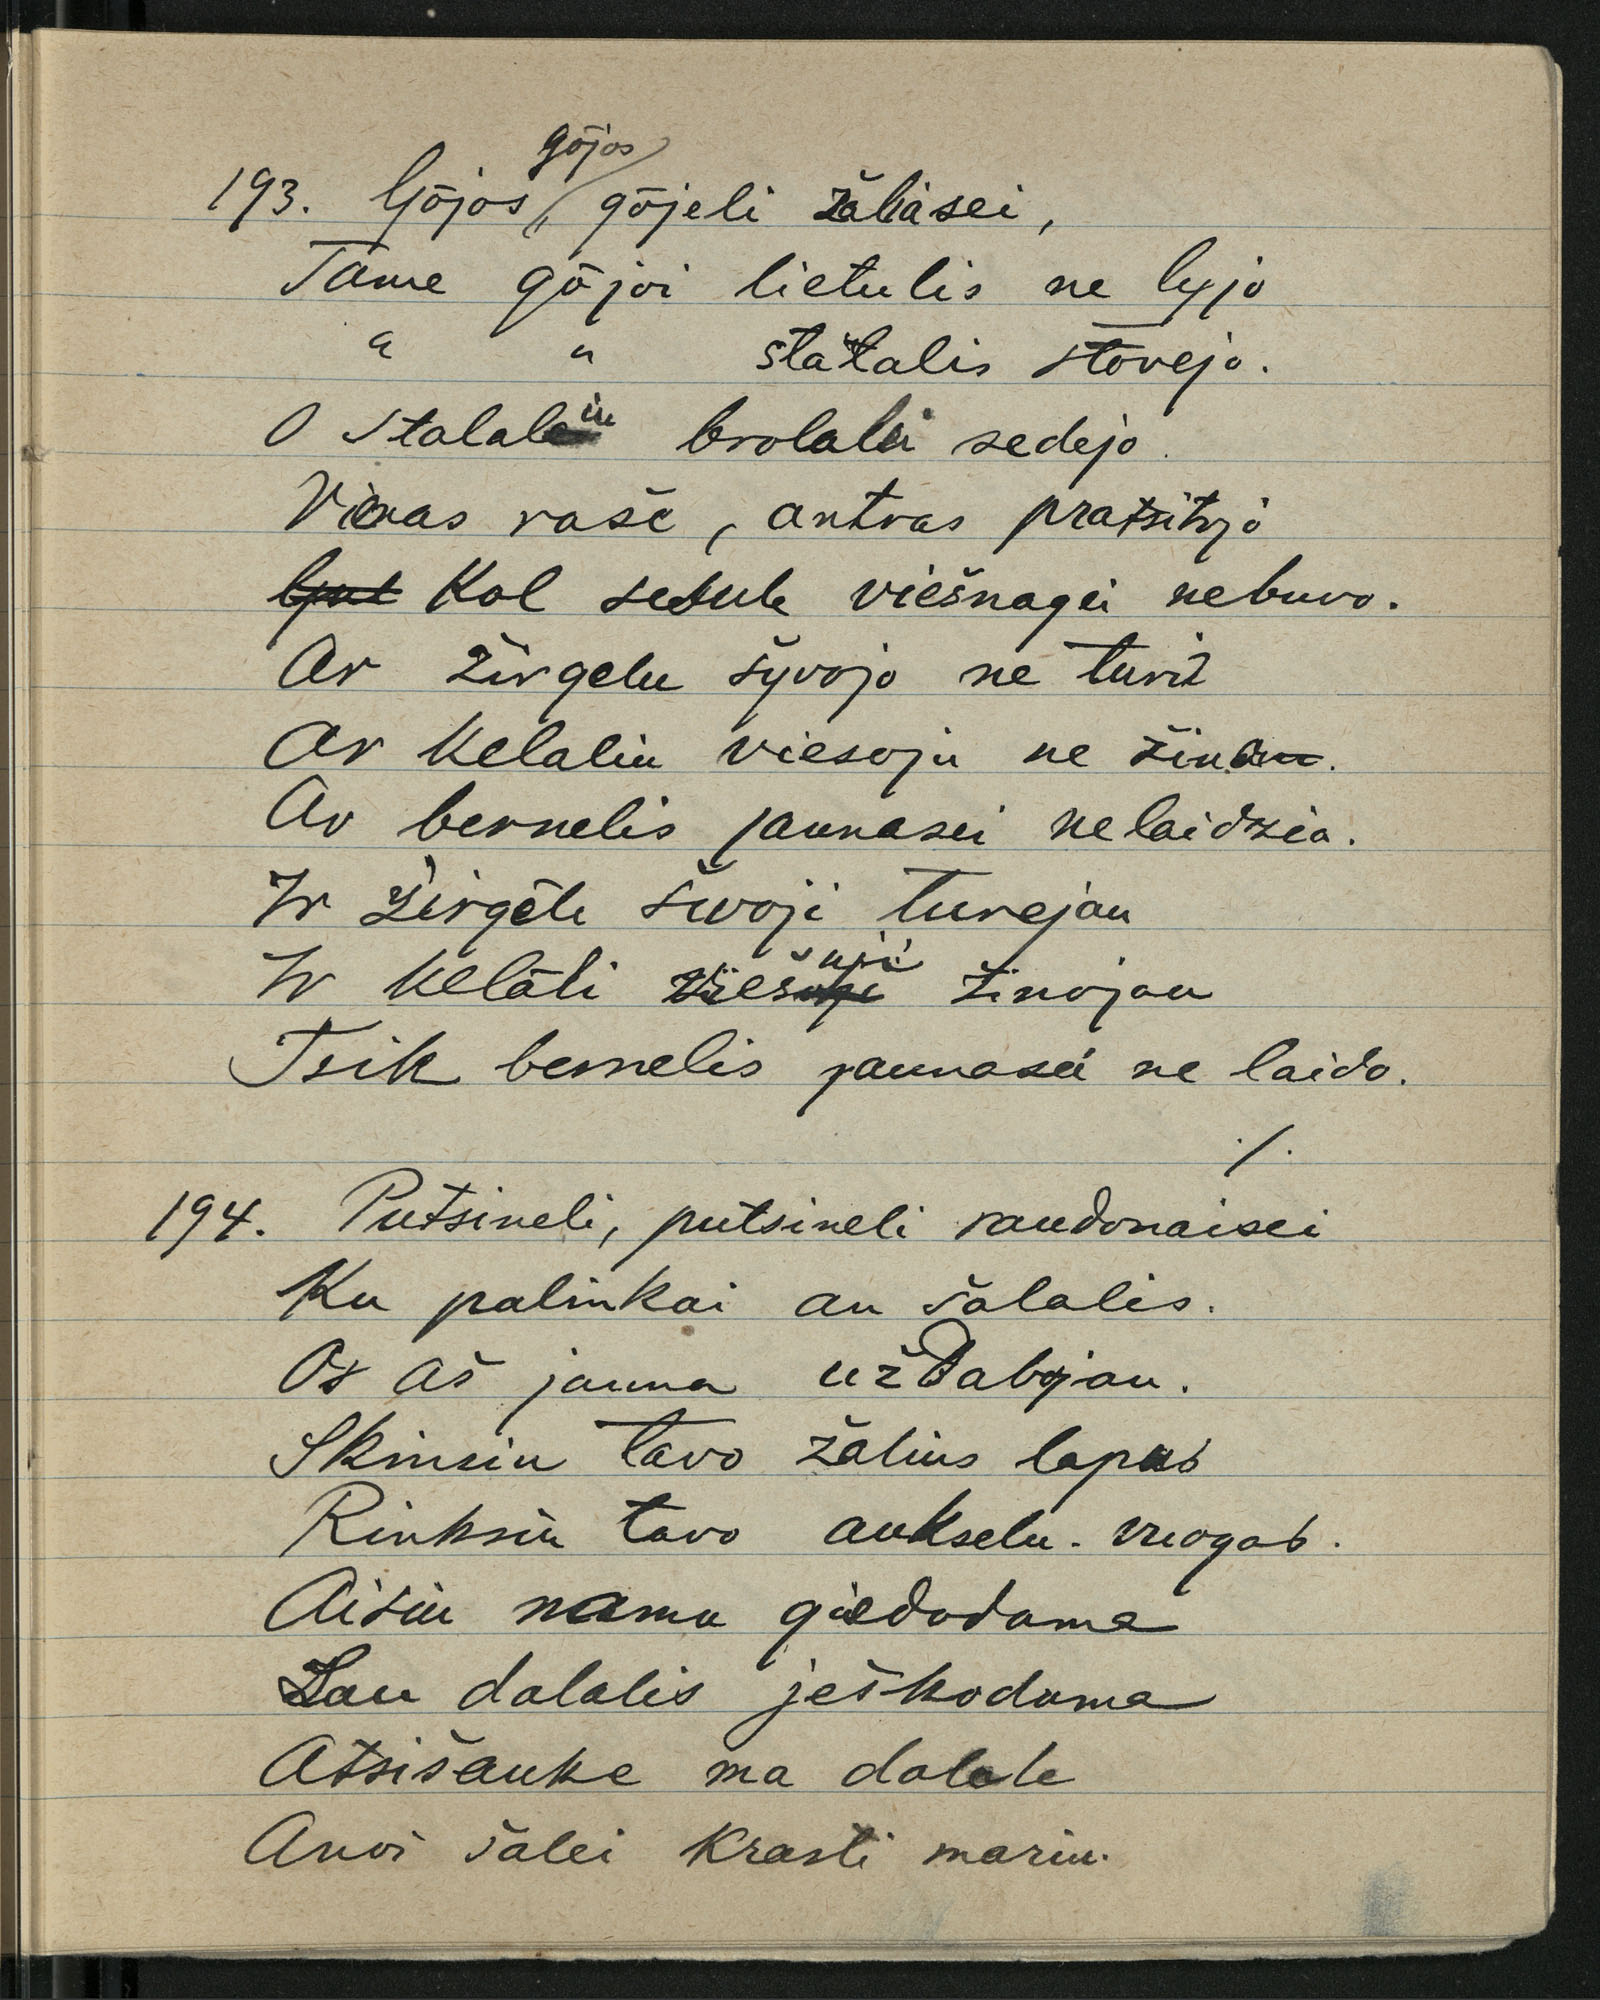 193. Gōjos, gōjos gōjeli žaliasei,
Tame gōjoi lietulis ne lyjo
" " statalis stovejo.
O stalaleiu brolalei sedejo.
Vienas raše, antras pratsitojo
Kol sesule viešnagei nebuvo.
Ar žirgelu šyvojo ne turi
Ar kelaliu viesoju ne žinau.
Ar bernelis jaunasei nelaidzia.
Ir žirgēli švoji turejau
Ir kelāli viešuji žinojau
Tsik bernelis jaunasei ne laido.
./.
194. Putsineli, putsineli raudonaisei
Ku palinkai an šalalis.
Oz aš jauna uždabojau.
Skinsiu tavo žalius lapus
Rinksiu tavo aukselu. vuogas.
Aisiu namu giedodama
Zau dalalis ješkodama
Atsišauke ma dalale
Anoi šalei krasti mariu.